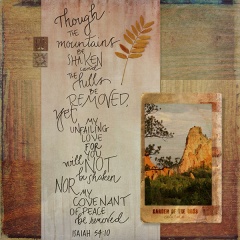 Though
THE
mountains
BE
SHAKEN
and
THE
hills
BE
REMOVED,
yet
MY
UNFAILING
LOVE
FOR
YOU
will NOT
be shaken
NOR MY
COVENANT
OF PEACE
be removed
ISAIAH 54:10
GARDEN OF THE GODS